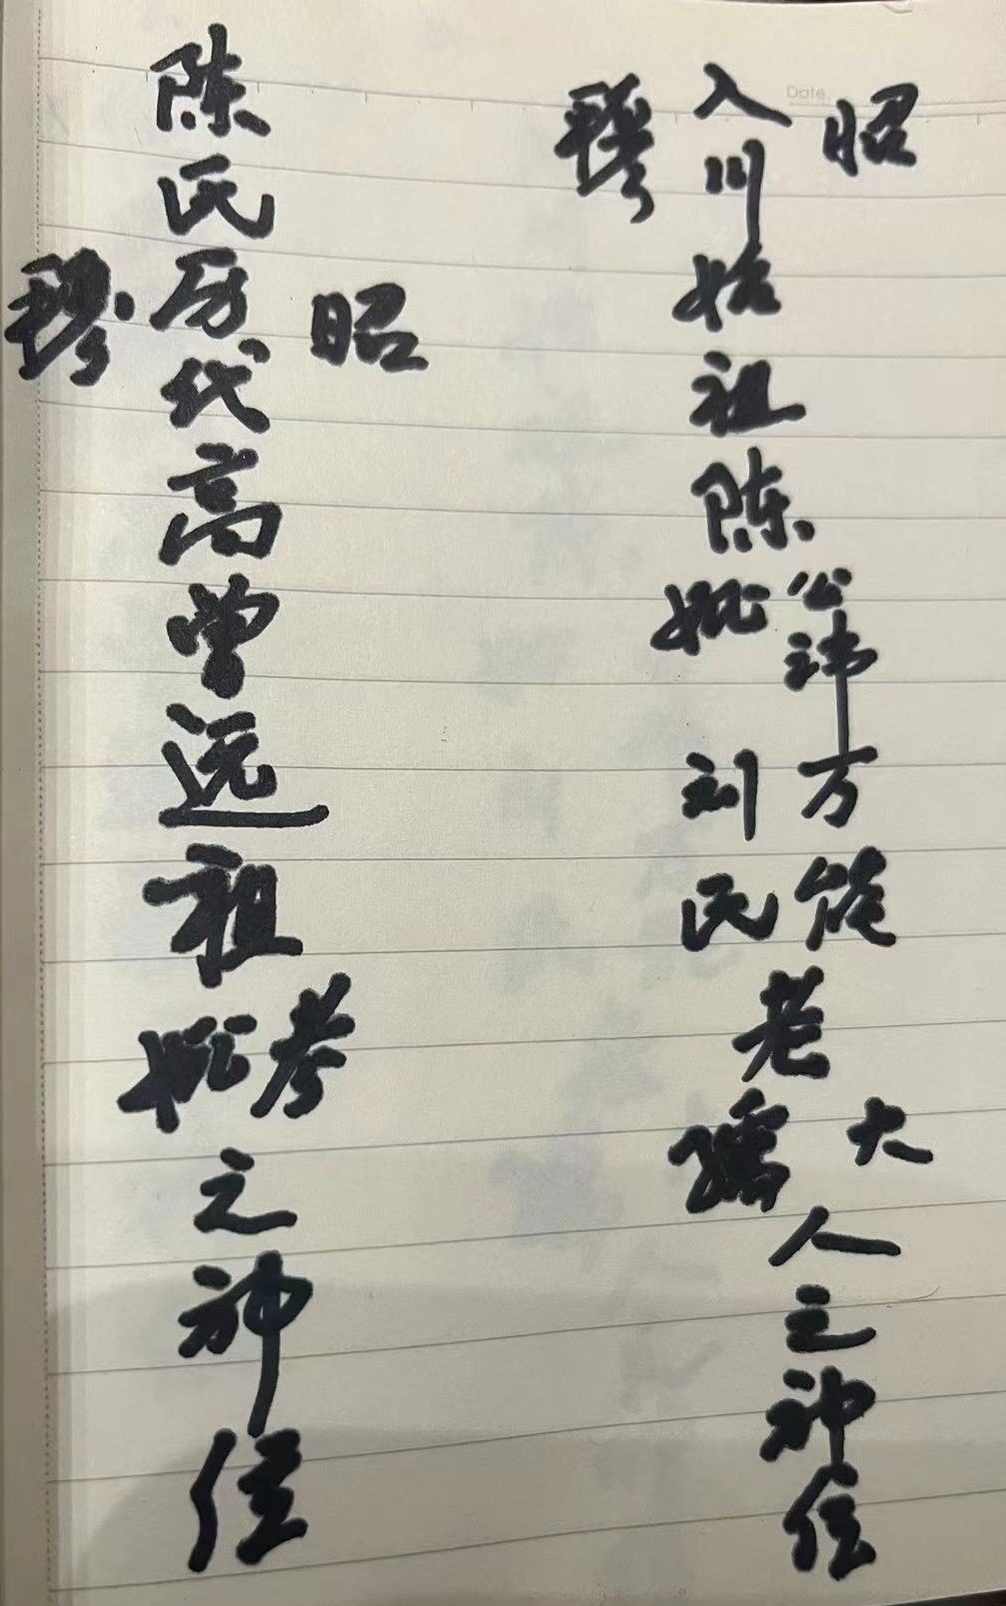 Date
昭
入川始祖陈
公讳万能
妣刘氏
老
大
孺
人之神位
穆
昭
陈氏历代高曾远祖
考
妣
之神位
穆